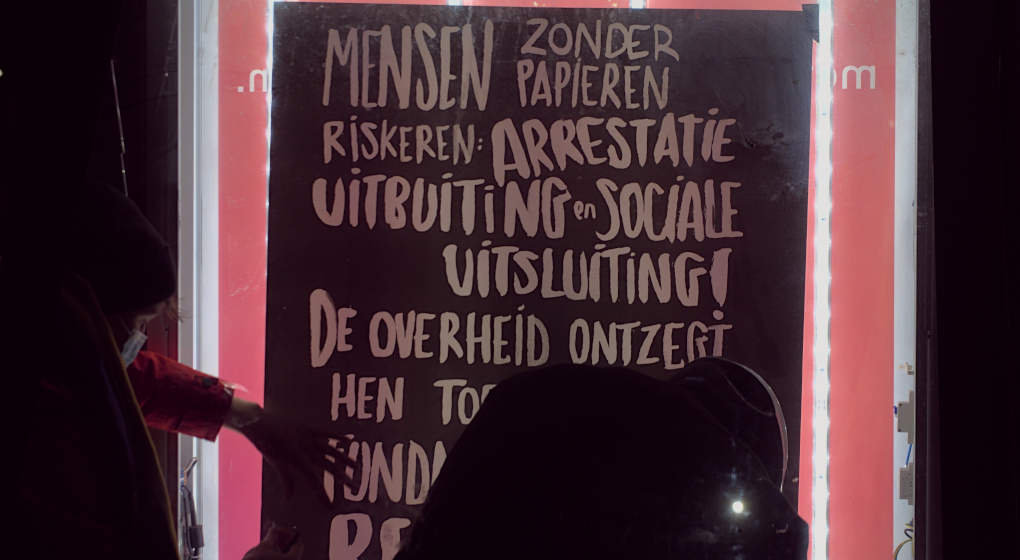 MENSEN ZONDER PAPIEREN
RISKEREN: ARRESTATIE
UITBUITING en SOCIALE
UITSLUITING!
DE OVERHEID ONTZEGT
HEN